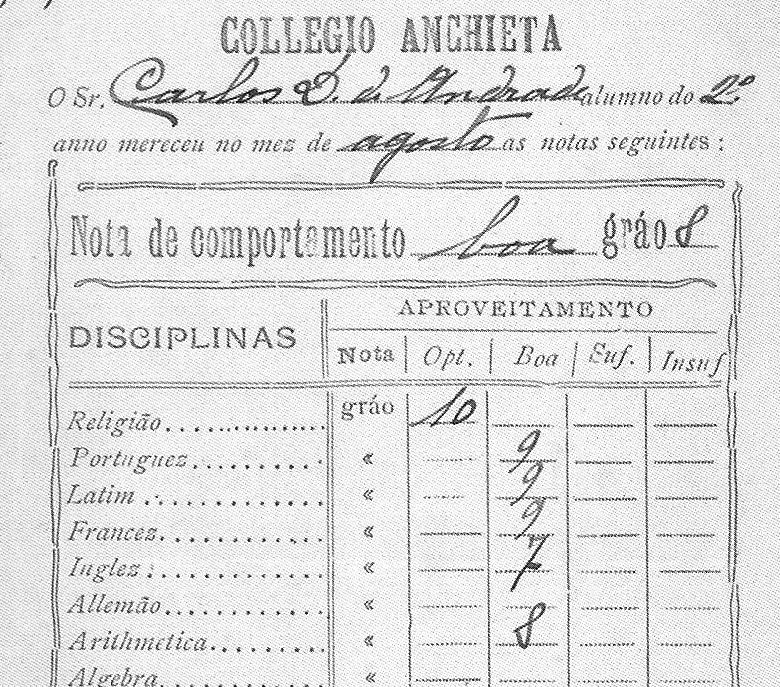 COLLEGIO ANCHIETA
O Sr. Carlos D. de Andrade alumno do 2º
anno mereceu no mez de agosto as notas seguintes :
Nota de comportamento boa gráo 8
DISCIPLINAS
APROVEITAMENTO
Nota Opt. Boa Suf. Insuf
Religião gráo 10
Portuguez « 9
Latim « 9
Francez « 9
Inglez « 7
Allemão «
Arithmetica « 8
Algebra «